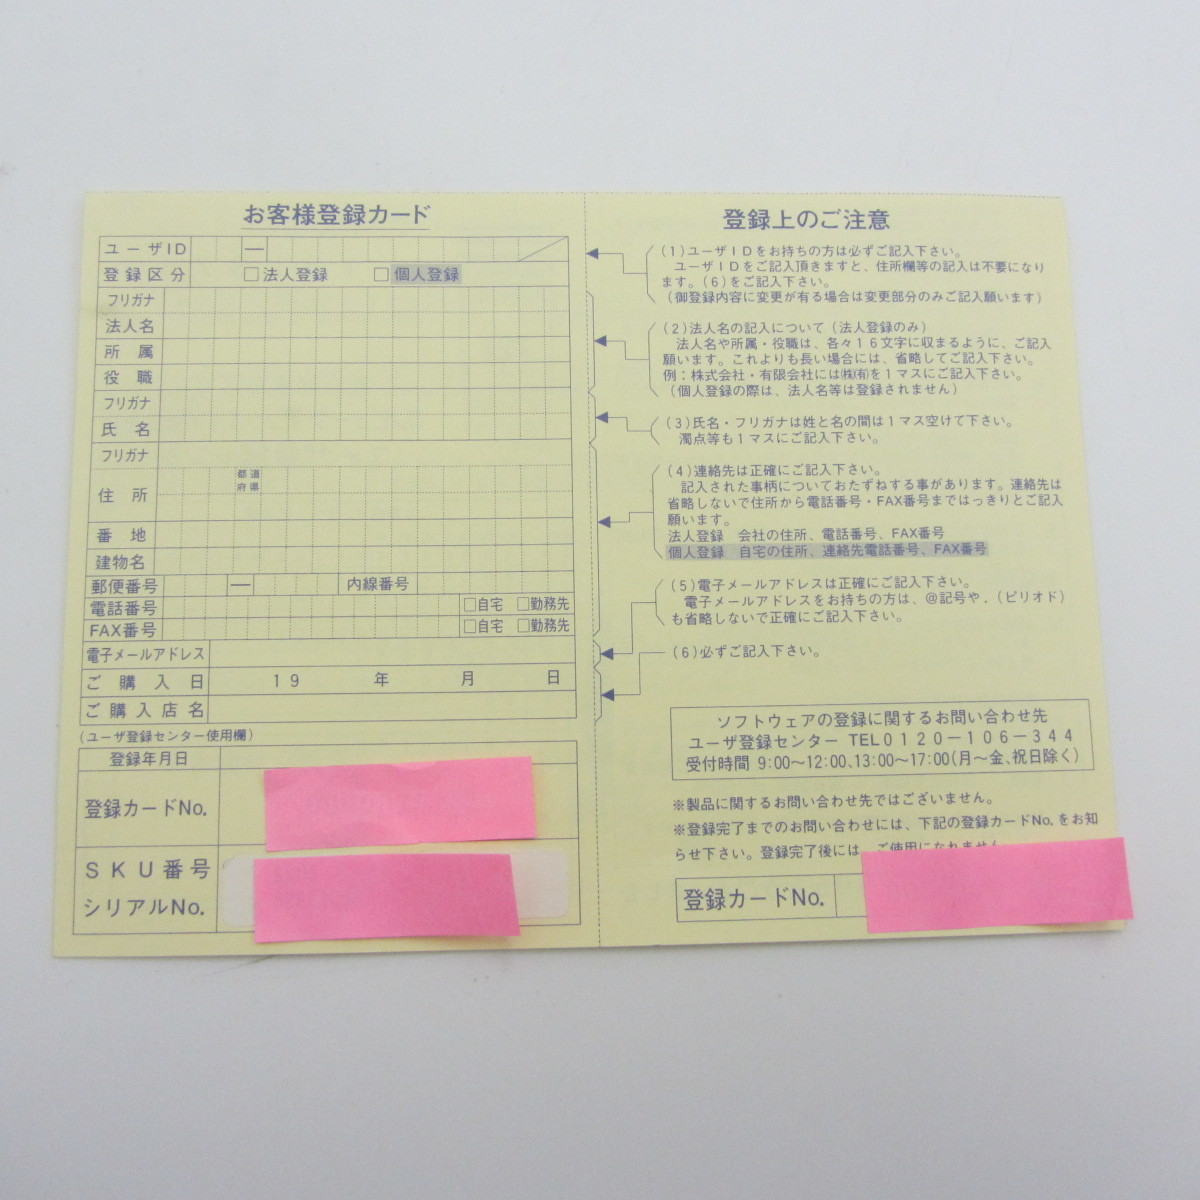 お客様登録カード
ユーザID
登録区分 □法人登録 □個人登録
フリガナ
法人名
所属
役職
フリガナ
氏名
フリガナ
住所 都道府県
番地
建物名
郵便番号 ― 内線番号
電話番号 □自宅 □勤務先
FAX番号 □自宅 □勤務先
電子メールアドレス
ご購入日 19 年 月 日
ご購入店名
(ユーザ登録センター使用欄)
登録年月日
登録カードNo.
SKU番号
シリアルNo.
登録上のご注意
(1)ユーザIDをお持ちの方は必ずご記入下さい。
ユーザIDをご記入頂きますと、住所欄等の記入は不要になり
ます。(6)をご記入下さい。
(御登録内容に変更が有る場合は変更部分のみご記入願います)
(2)法人名の記入について(法人登録のみ)
法人名や所属・役職は、各々16文字に収まるように、ご記入
願います。これよりも長い場合には、省略してご記入下さい。
例:株式会社・有限会社には㈱㈲を1マスにご記入下さい。
(個人登録の際は、法人名等は登録されません)
(3)氏名・フリガナは姓と名の間は1マス空けて下さい。
濁点等も1マスにご記入下さい。
(4)連絡先は正確にご記入下さい。
記入された事柄についておたずねする事があります。連絡先は
省略しないで住所から電話番号・FAX番号まではっきりとご記入
願います。
法人登録 会社の住所、電話番号、FAX番号
個人登録 自宅の住所、連絡先電話番号、FAX番号
(5)電子メールアドレスは正確にご記入下さい。
電子メールアドレスをお持ちの方は、@記号や.(ピリオド)
も省略しないで正確にご記入下さい。
(6)必ずご記入下さい。
ソフトウェアの登録に関するお問い合わせ先
ユーザ登録センター TEL0120-106-344
受付時間 9:00~12:00、13:00~17:00(月~金、祝日除く)
※製品に関するお問い合わせ先ではございません。
※登録完了までのお問い合わせには、下記の登録カードNo.をお知
らせ下さい。登録完了後には、ご使用になれません
登録カードNo.